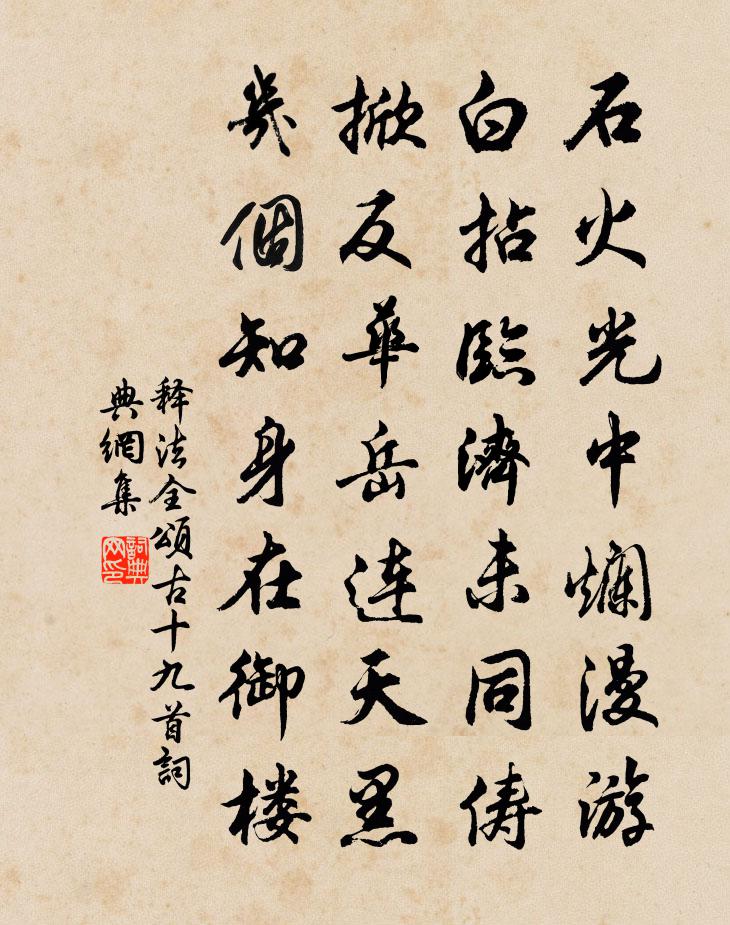 石火光中爛漫游
白拈臨濟未同俦
掀反華岳連天黑
幾個知身在御楼
释法全頌古十九首詞
典網集
詞典
网印